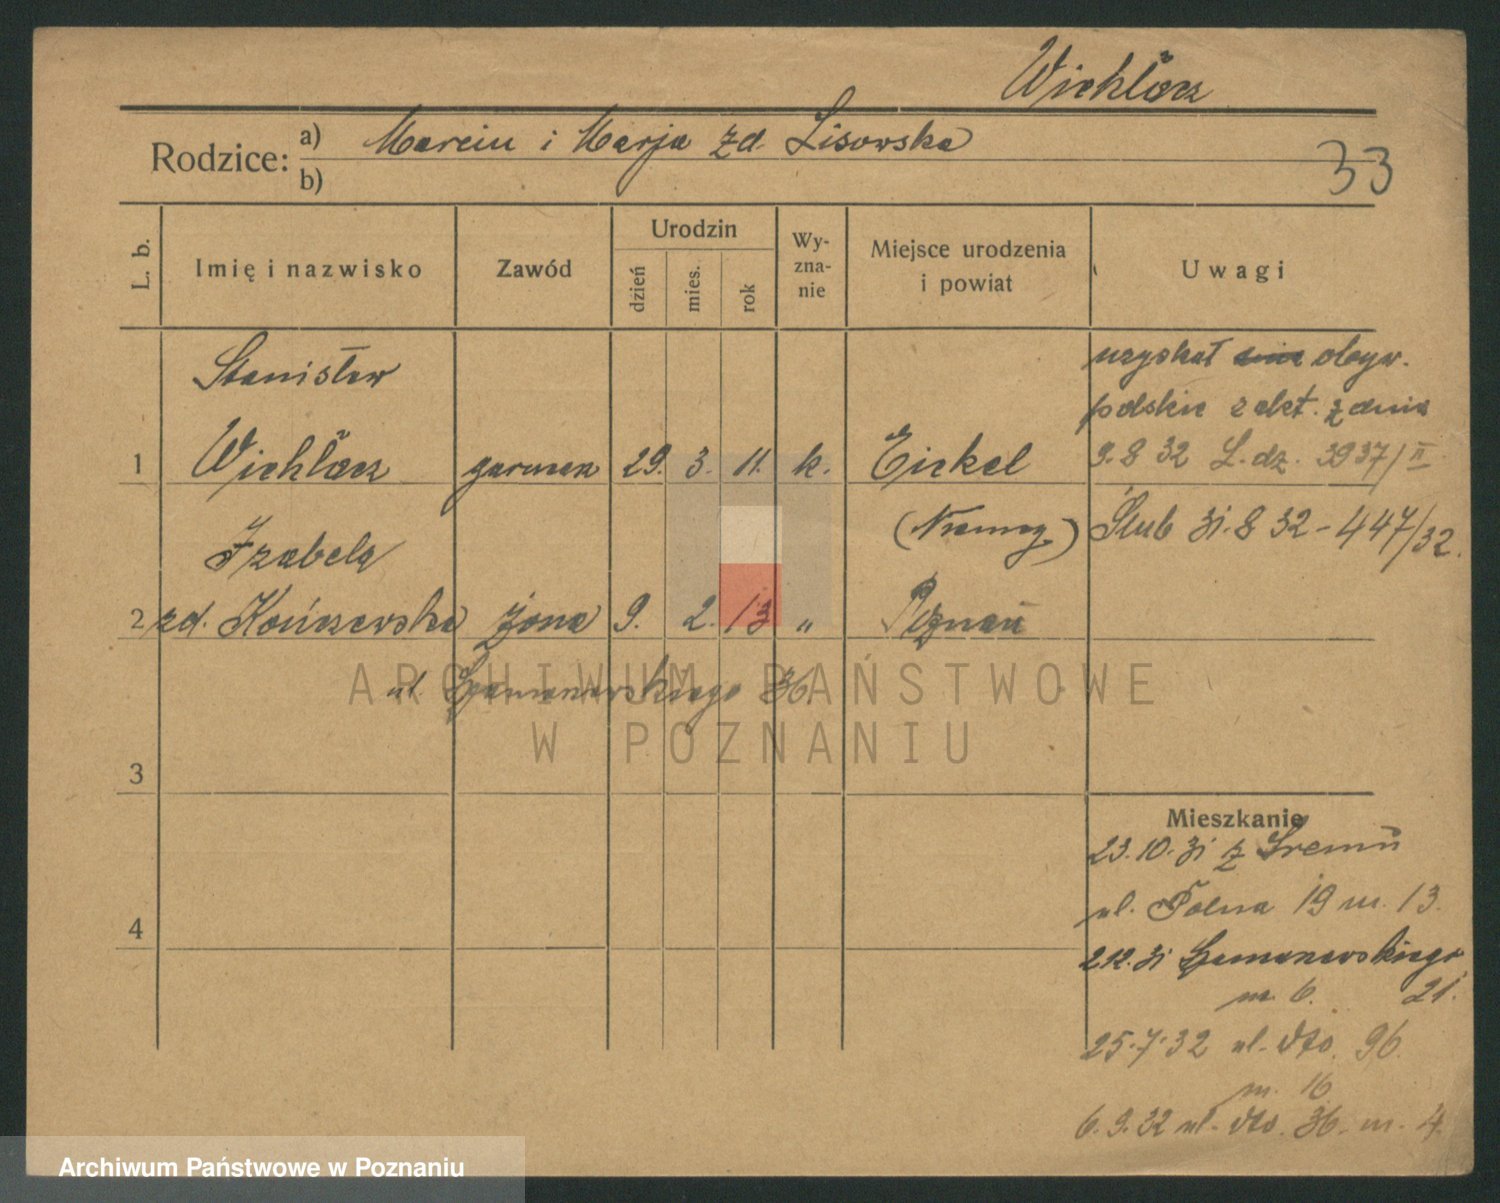 Wichłacz
Rodzice:
a) Marcin i Marja zd. Lisowska
b)
33
L. b.
Imię i nazwisko
Zawód
Urodzin
dzień
mies.
rok
Wy-
zna-
nie
Miejsce urodzenia
i powiat
Uwagi
Stanisław
1 Wichłacz garncarz 29. 3. 11. k. Eickel
(Niemcy)
uzyskał obyw.
polskie z dnia
9.8 32 L. dz. 3937/II
Ślub 31.8 32 - 447/32.
Izabela
2 zd. żona 9. 2. 13 " Poznań
ul. Szamarzewskiego 36
3
4
Mieszkanie
23.10.31 z Śremu
ul. Polna 19 m. 13.
2 12. 31 Szamarzewskiego
m. 6. 21.
25.7.32 ul. dto. 96.
m. 16
6.9.32 ul. dto. 36. m. 4.
ARCHIWUM PAŃSTWOWE
W POZNANIU
Archiwum Państwowe w Poznaniu